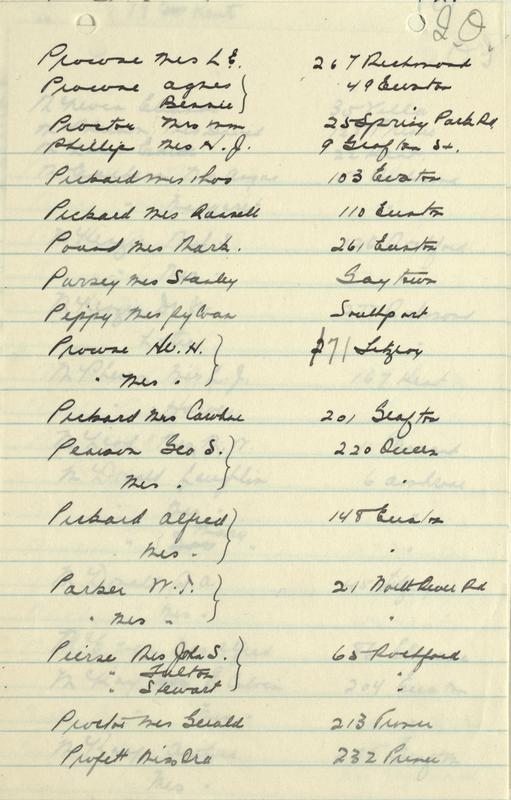 20
Prowse Mrs L E. 267 Richmond
Prowse Agnes 49 Euston
Bennie
Proctor Mrs Wm 25 Spring Park Rd
Phillip Mrs H. J. 9 Grafton St.
Pickard Mrs Thos 103 Euston
Pickard Mrs Russell 110 Euston
Pound Mrs Mark. 261 Euston
Pursey Mrs Stanley
Peppy Mrs Southport
Prowse W. H. 71 Fitzroy
" Mrs "
Pickard Mrs 201 Grafton
Pearson Geo S. 220 Queen
Mrs " "
Pickard Alfred 148 Euston
" Mrs " "
Parker W. J. 21 North River Rd
" Mrs " "
Pierse Mrs John S. 65 Rochford
" Fulton "
" Stewart
Proctor Mrs Gerald 213
Profett Miss Ora 232